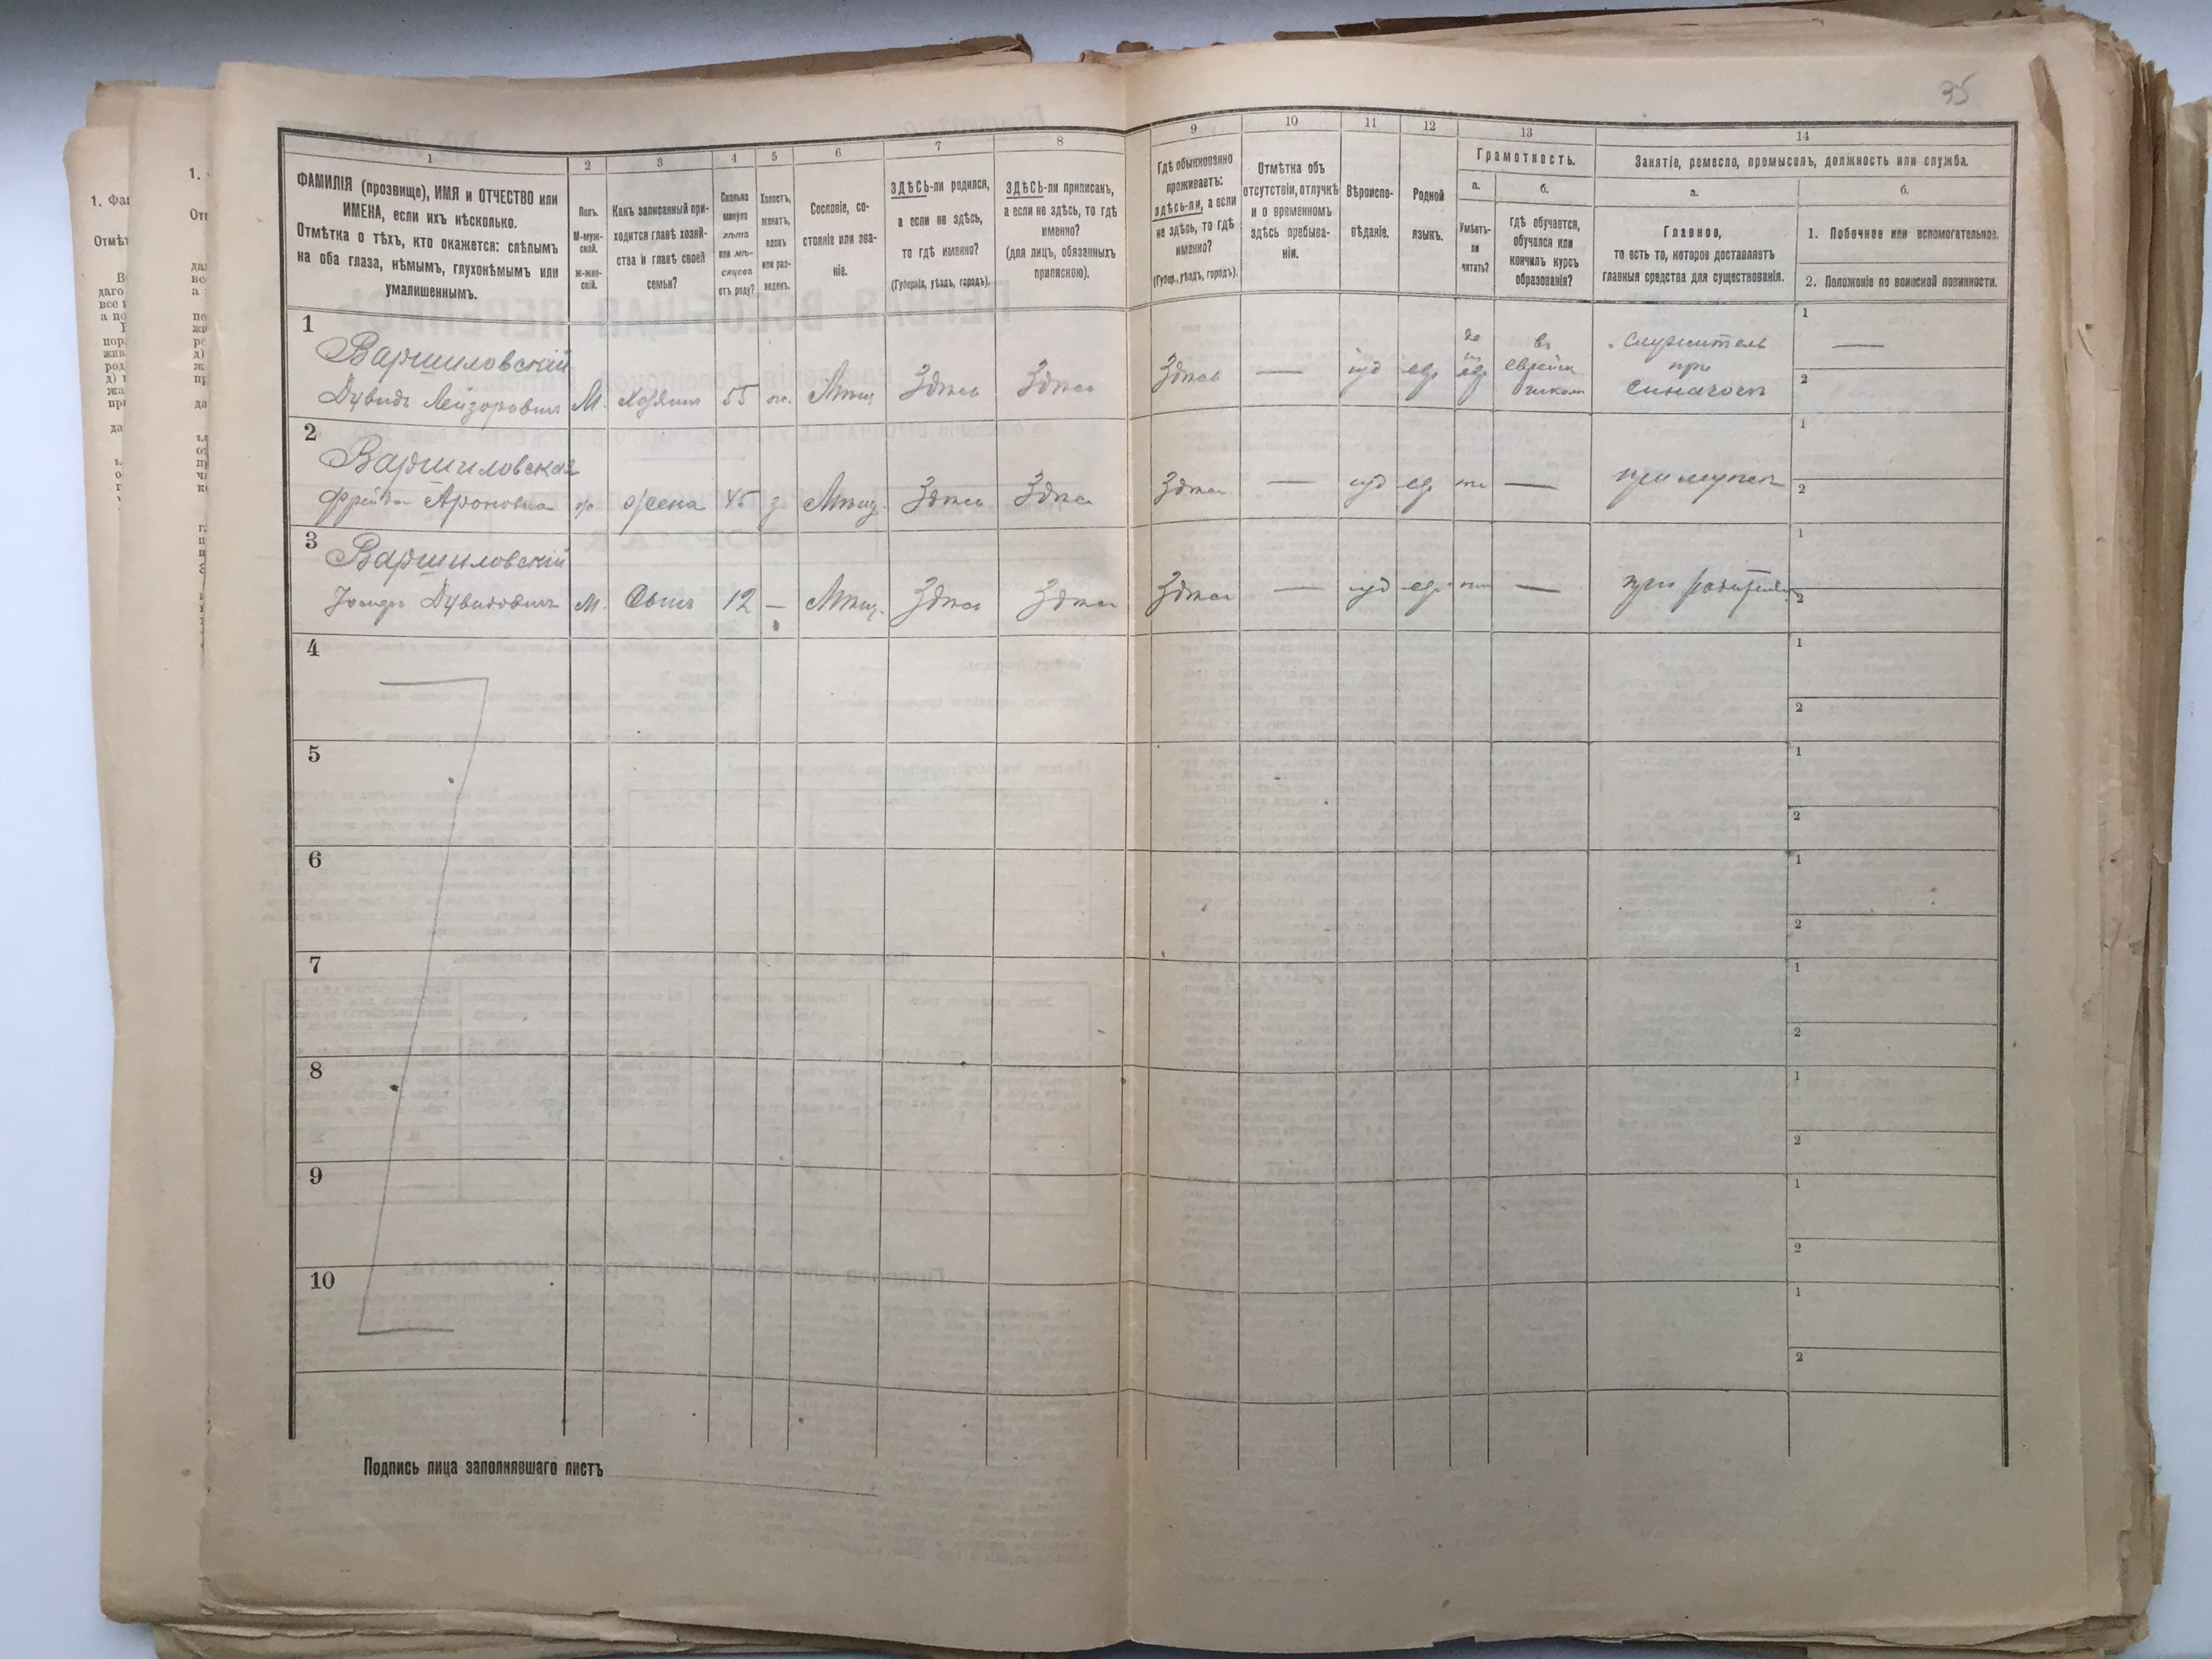 35
1
2
3
4
5
6
7
8
9
10
11
12
13
14
ФАМИЛІЯ (прозвище), ИМЯ и ОТЧЕСТВО или
ИМЕНА, если ихъ нѣсколько.
Отмѣтка о тѣхъ, кто окажется: слѣпымъ
на оба глаза, нѣмымъ, глухонѣмымъ или
умалишеннымъ.
Полъ.
М-муж-
ской.
Ж-жен-
скій.
Какъ записанный при-
ходится главѣ хозяй-
ства и главѣ своей
семьи?
Сколько
минуло
лѣтъ
или мѣ-
сяцевъ
отъ роду?
Холостъ,
женатъ,
вдовъ
или раз-
веденъ.
Сословіе, со-
стояніе или зва-
ніе.
ЗДѢСЬ-ли родился,
а если не здѣсь,
то гдѣ именно?
(Губернія, уѣздъ, городъ).
ЗДѢСЬ-ли приписанъ,
а если не здѣсь, то гдѣ
именно?
(для лицъ, обязанныхъ
припискою).
Гдѣ обыкновенно
проживаетъ:
здѣсь-ли, а если
не здѣсь, то гдѣ
именно?
(Губер., уѣздъ, городъ).
Отмѣтка объ
отсутствіи, отлучкѣ
и о временномъ
здѣсь пребыва-
ніи.
Вѣроиспо-
вѣданіе.
Родной
языкъ.
Грамотность.
а.
б.
Умѣетъ-
ли
читать?
гдѣ обучается,
обучался или
кончилъ курсъ
образованія?
Занятіе, ремесло, промыселъ, должность или служба.
а.
б.
Главное,
то есть то, которое доставляетъ
главныя средства для существованія.
1. Побочное или вспомогательное.
2. Положеніе по воинской повинности.
1
Варшиловскій
Дувидъ Лейзоровичъ М. Хозяинъ 55 Мѣщ Здѣсь Здѣсь Здѣсь — іуд евр
да
евр
въ
служитель
при
синагогѣ
1 —
2
2
Варшиловская
Фрейда Ароновна ж. жена 45 з. Мѣщ. Здѣсь Здѣсь Здѣсь — іуд евр — при мужѣ
1
2
3
Варшиловскій
Дувидовичъ М. Сынъ 12 — Мѣщ. Здѣсь Здѣсь Здѣсь — іуд евр. —
1
2
4
1
2
5
1
2
6
1
2
7
1
2
8
1
2
9
1
2
10
1
2
Подпись лица заполнявшаго листъ